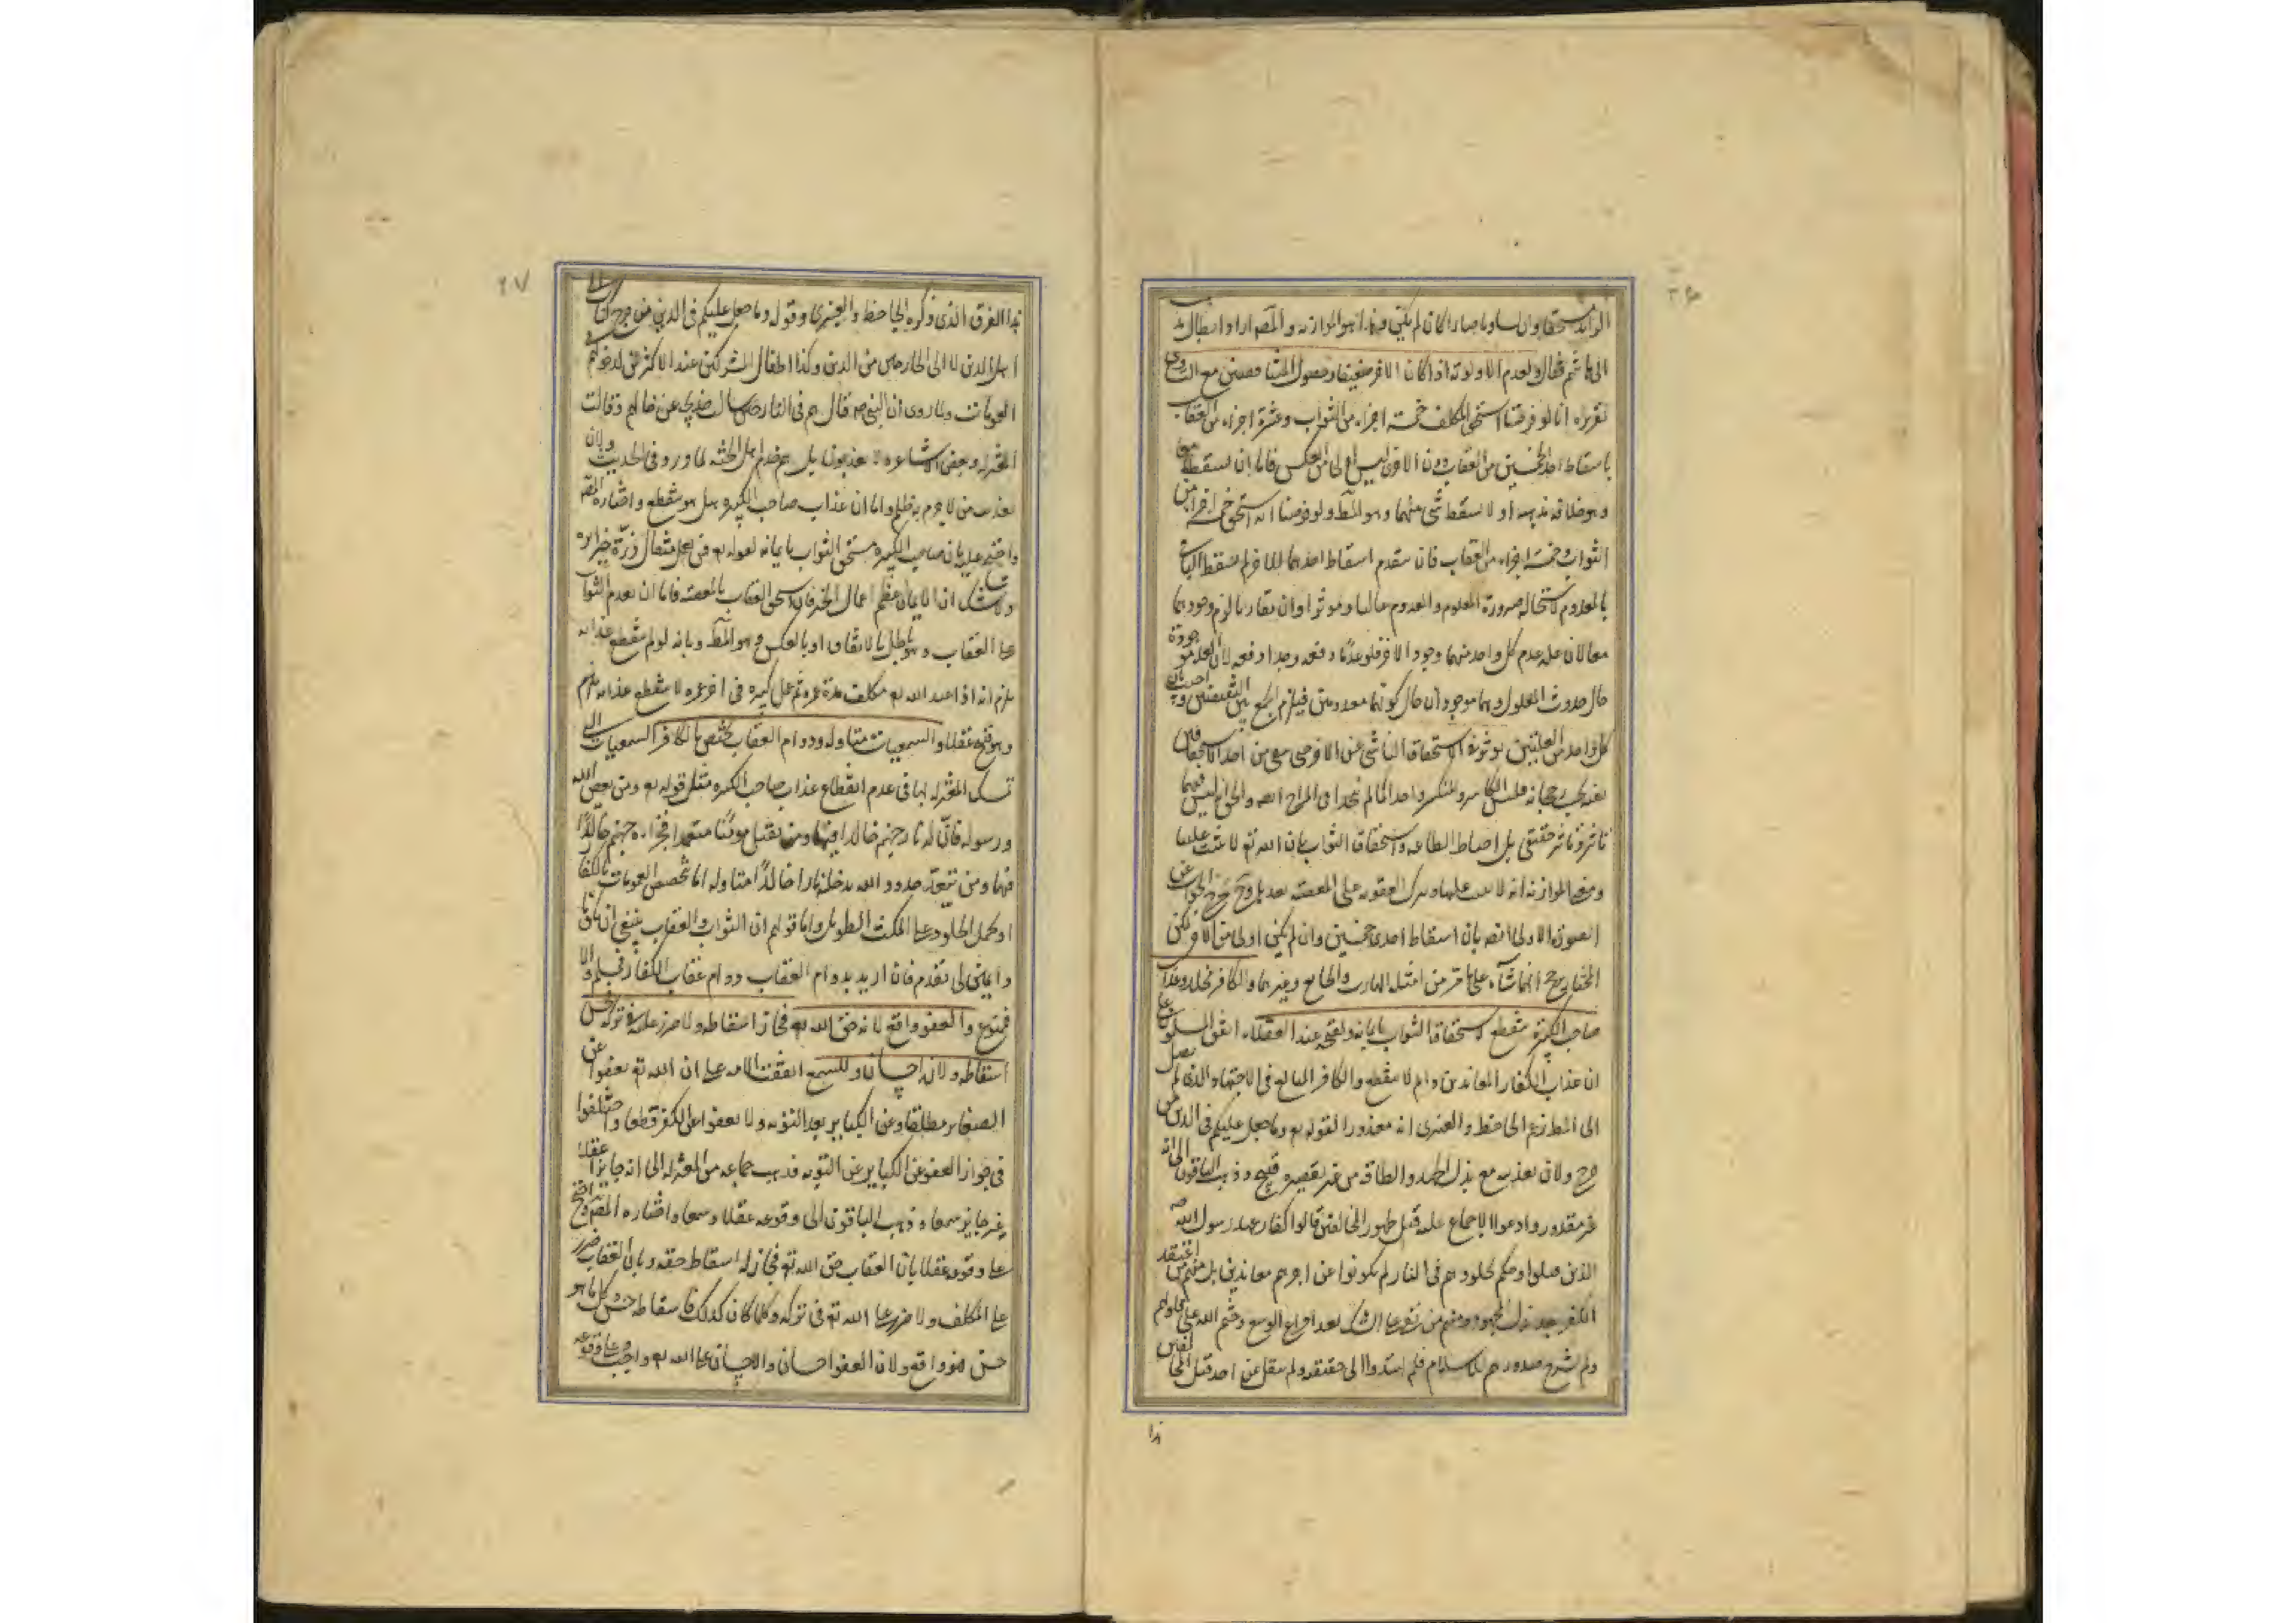 ٣٦
الزائد مستحقا وان تساويا صارا كان لم يكن فهذا هو الموازنه والمصـ اراد ابطال مذهب
ابى هاشم فقال ولعدم الاولوية اذا كان الآخر ضعيفا وحصول المتناقضين مع التساوى
تقريره انا لو فرضنا استحق المكلف خمسة اجزاء من الثواب وعشرة اجزاء من العقاب
باسقاط احد الخمستين من العقاب دون الاخرى ليس اولى من العكس فاما ان يسقطا معا
وهو خلاف مذهبه او لا يسقط شئ منهما وهو المط ولو فرضنا انه استحق خمسة اجزاء من
الثواب وخمسة اجزاء من العقاب فان تقدم اسقاط احدهما للآخر لم يسقط الباقى
بالمعدوم لاستحالة صيرورة المعلوم والمعدوم غالبا وموثرا وان تقارنا لزم وجودهما
معا لان علة عدم كل واحد منهما وجود الآخر فلو عدما دفعة وجدا دفعة لان العلة موجودة
حال حدوث المعلول وهما موجودان حال كونهما معدومين فيلزم الجمع بين النقيضين واجيب بان
كل واحد من العلتين يوثر فى الاستحقاق الناشى عن الاخرى حتى يبقى من احد الاستحقاقين
بقية بحسب رجحانه فليس الكاسر والمنكسر واحدا كما لم يتحدا فى المزاج ايضا والحق انه ليس فيهما
تاثير وتاثر حقيقى بل احباط الطاعه واستحقاق الثواب بان الله تع لا يثيب عليها
ومعنى الموازنه انه لا يثيب عليها ويترك العقوبة على المعصية بعدله وح يخرج الجواب عن
الصورة الاولى ايضا بان اسقاط احدى خمستين وان لم يكن اولى من الآخر لكن
المختار يرجح ايهما شاء على ما مر من امثلة الهارب والجايع وغيرهما والكافر مخلد وعذاب
صاحب الكبيرة منقطع لاستحقاقه الثواب بايمانه ولقبحه عند العقلاء اتفق المسلمون على
ان عذاب الكفار المعاندين دايم لا ينقطع والكافر المبالغ فى الاجتهاد الذى لم يصل
الى المط زعم الجاحظ والعنبرى انه معذور لقوله تع وما جعل عليكم فى الدين من
حرج ولان تعذيبه مع بذل الجهد والطاقة من غير تقصير قبيح وذهب الباقون الى انه
غير معذور وادعوا الاجماع عليه قبل ظهور المخالفين قالوا كفار عهد رسول الله صـ
الذين قتلوا وحكم بخلودهم فى النار لم يكونوا عن آخرهم معاندين بل منهم من اعتقد
الكفر بعد بذل المجهود ومنهم من بقى على الشك بعد افراغ الوسع وختم الله على قلوبهم
ولم يشرح صدورهم للاسلام فلم يهتدوا الى حقيقته ولم ينقل عن احد قبل المخالفين
هذا
٣٧
هذا الفرق الذى ذكره الجاحظ والعنبرى وقوله وما جعل عليكم فى الدين من حرج خطاب الى
اهل الدين لا الى الخارجين من الدين وكذا اطفال المشركين عند الاكثرين لدخولهم فى
العمومات ولما روى ان النبى صـ قال هم فى النار حين سالت خديجة عن حالهم وقالت
المعتزله وبعض الاشاعره لا يعذبون بل هم خدام اهل الجنة لما ورد فى الحديث ولان
تعذيب من لا جرم له ظلم واما ان عذاب صاحب الكبيره هل هو منقطع واختاره المصـ
واحتج عليه بان صاحب الكبيره مستحق الثواب بايمانه لقوله تع فمن يعمل مثقال ذرة خيرا يره
ولا شك ان الايمان اعظم اعمال الخير فان استحق العقاب بالمعصية فاما ان يقدم الثواب
على العقاب وهو باطل بالاتفاق او بالعكس وهو المط وبانه لو لم ينقطع عذابه
يلزم انه اذا عبد الله تع مكلف مدة عمره ثم عمل كبيره فى آخر عمره لا ينقطع عذابه
وهو قبيح عقلا والسمعيات متاولة ودوام العقاب مختص بالكافر السمعيات التى
تمسك المعتزله بها فى عدم انقطاع عذاب صاحب الكبيره مثل قوله تع ومن يعص الله
ورسوله فان له نار جهنم خالدا فيها ومن يقتل مؤمنا متعمدا فجزاءه جهنم خالدا
فيها ومن يتعد حدود الله يدخله نارا خالدا متاوله اما بتخصيص العمومات بالكفار
او بحمل الخلود على المكث الطويل واما قولهم ان الثواب والعقاب ينبغى ان يكونا
دايمين لما تقدم فان اريد بدوام العقاب دوام عقاب الكفار فمسلم والا
فممنوع والعفو واقع لانه حق الله تع فجاز اسقاطه ولا ضرر عليه فى تركه فحسن
اسقاطه ولانه احسان وللسمع اتفقت الامه على ان الله تع يعفوا عن
الصغاير مطلقا وعن الكباير بعد التوبه ولا يعفوا عن الكفر قطعا واختلفوا
فى جواز العفو عن الكباير عن التوبه فذهب جماعه من المعتزله الى انه جايز عقلا
غير جايز سمعا وذهب الباقون الى وقوعه عقلا وسمعا واختاره المصـ واحتج
على وقوعه عقلا بان العقاب حق الله تع فجاز له اسقاط حقه وبان العقاب ضرر
على المكلف ولا ضرر على الله تع فى تركه وكلما كان كذلك فاسقاطه حسن كل ما هو
حسن فهو واقع ولان العفو احسان والاحسان على الله تع واجب وعلى وقوعه